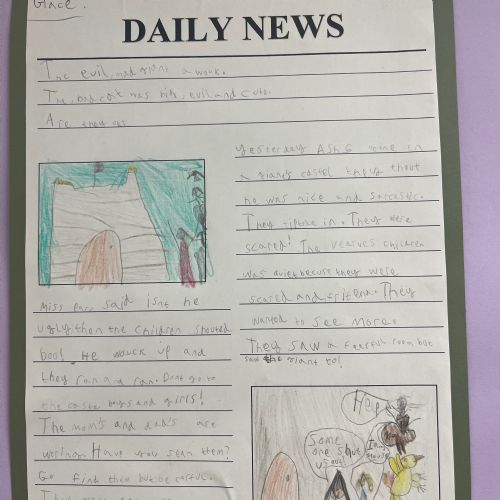 Grace.
DAILY NEWS
The evil, mad giant awouk.
The, bad cat was big, evil and cute.
Are they ok
Yesterday Ash 6 went in
a giants castel they thout
he was nice and sarcastic.
They tiptoe in. They were
scared! The children
was quiet becuse they were
scared and They
wanted to see more.
They saw a fearful room but
saw the giant to!
Miss said isnt he
ugly then the children shouted
boo! He wouck up and
they ran and ran. Dont go to
the caste boys and girls!
The mom's and dad's are
Have you seen them?
Go find them but be carful.
They were
Help
Some
one shut
us out
I am